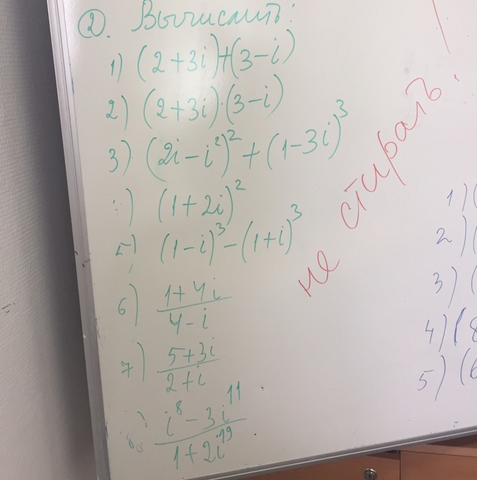 2. Вычислить:
1) (2+3i)+(3-i)
2) (2+3i)·(3-i)
3) (2i-i²)²+(1-3i)³
) (1+2i)²
5) (1-i)³-(1+i)³
6) 1+4i
4-i
7) 5+3i
2+i
i⁸-3i¹¹
1+2i¹⁹
не стирать!
1) (
2) (
3) (
4) (8
5) (6